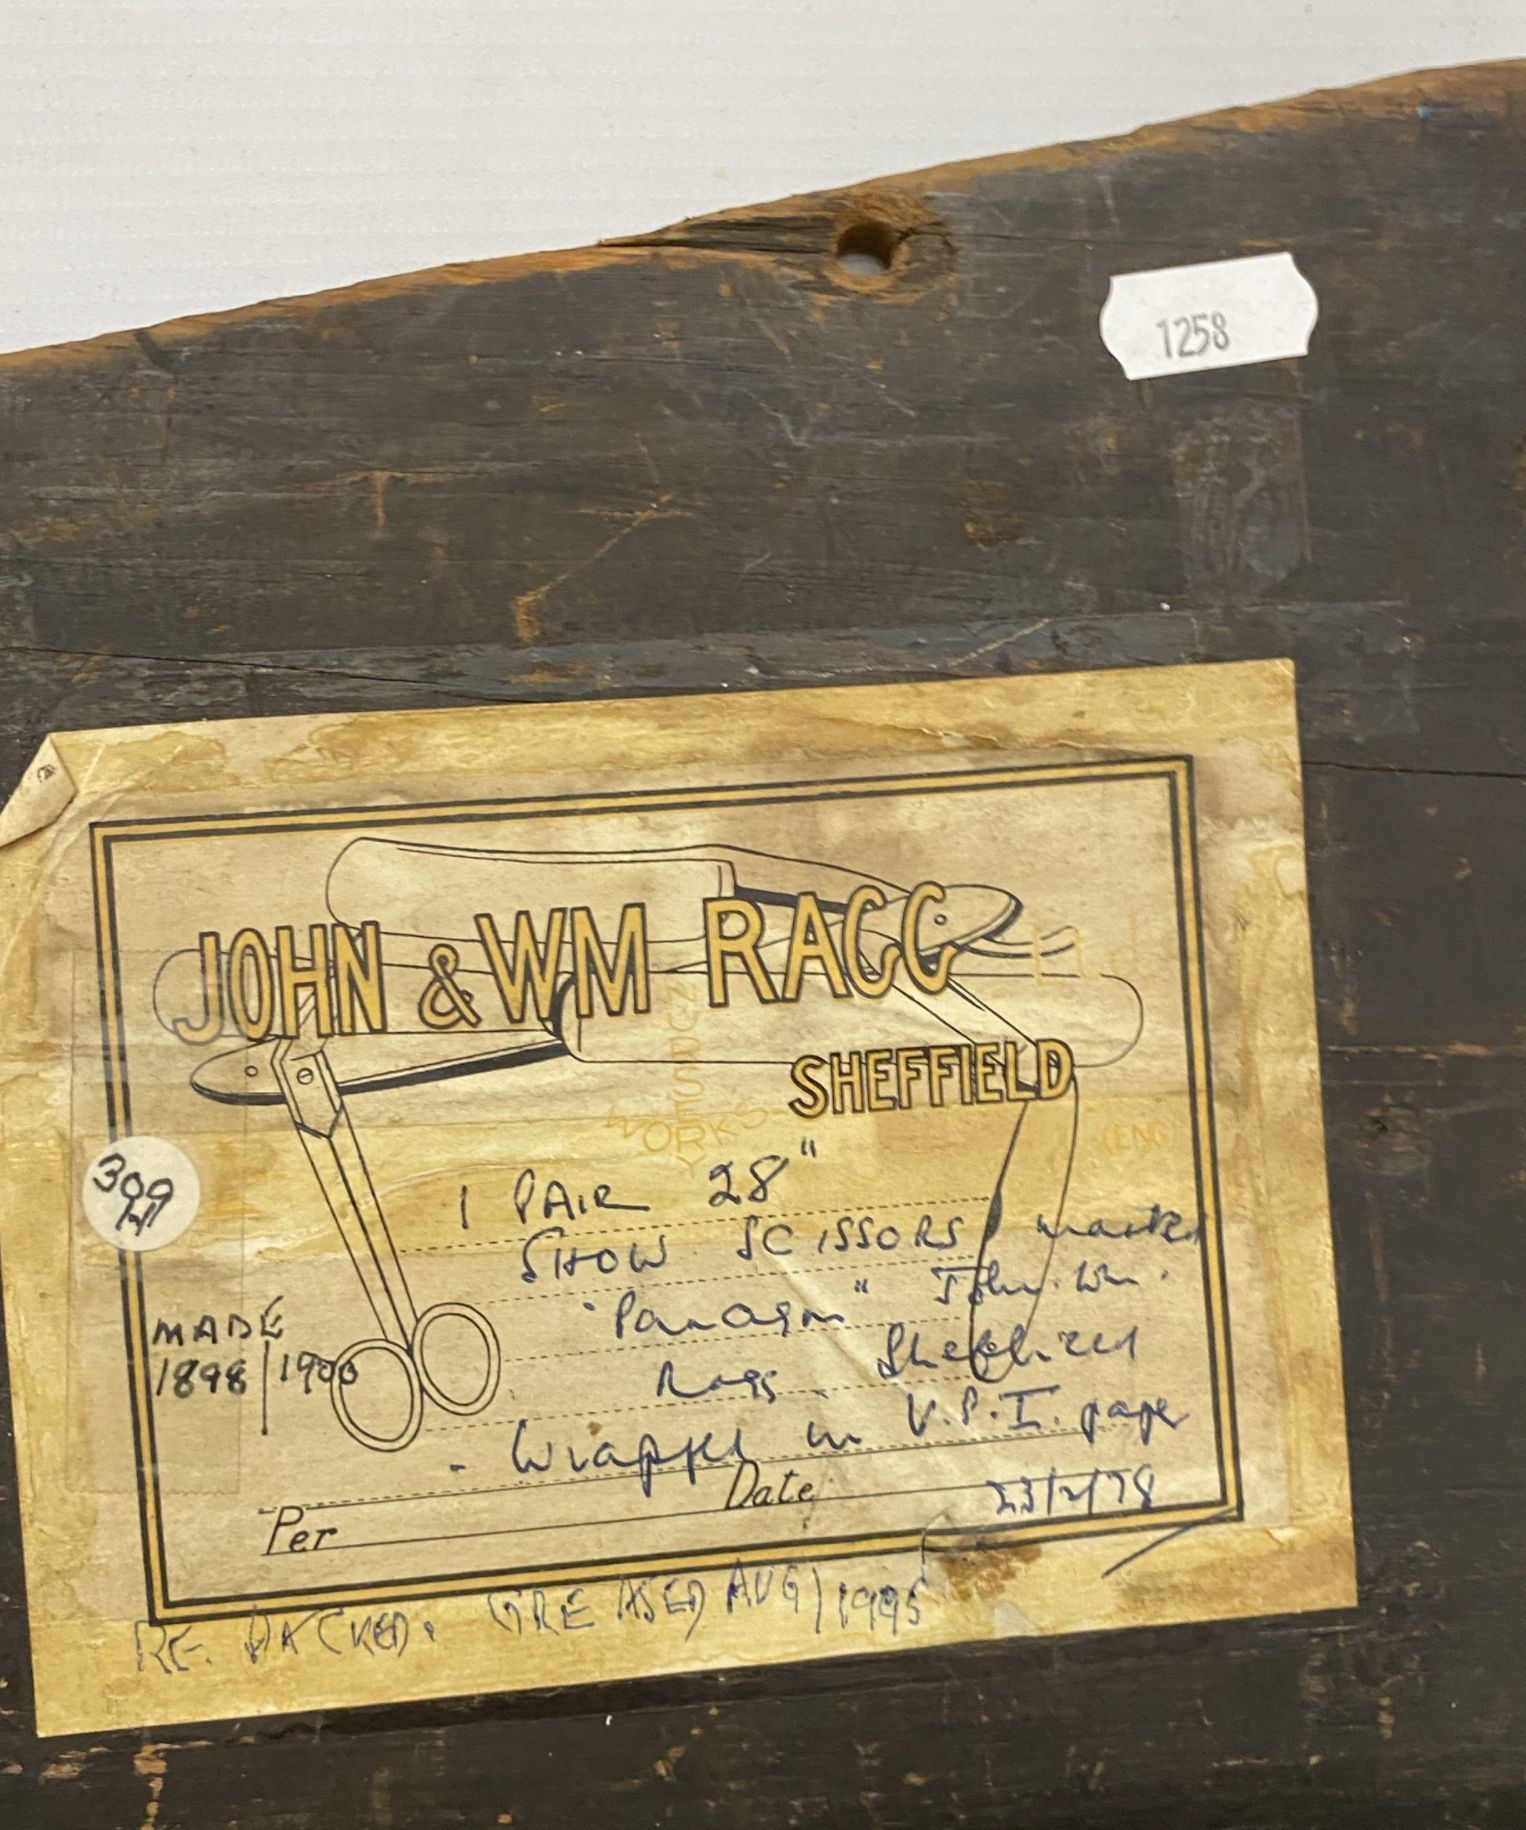 1258
JOHN & WM RAGG Ltd
NURSERY
WORKS
SHEFFIELD
(ENG
309
1 PAIR 28"
SHOW SCISSORS marked
"Paragon" John. Wm.
Ragg. Sheffield
- Wrapped in V.P.I. paper
MADE
1898/1900
Date 23/2/78
Per
RE. PACKED. GREASED AUG/1995